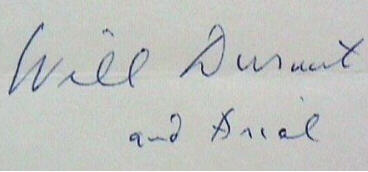 Will Durant
and Ariel